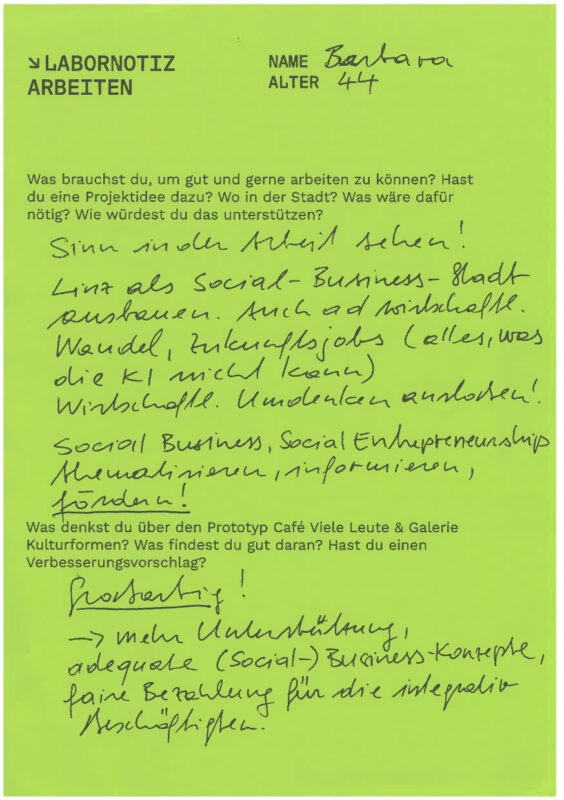 ↘LABORNOTIZ
ARBEITEN
NAME Barbara
ALTER 44
Was brauchst du, um gut und gerne arbeiten zu können? Hast
du eine Projektidee dazu? Wo in der Stadt? Was wäre dafür
nötig? Wie würdest du das unterstützen?
Sinn in der Arbeit sehen!
Linz als Social-Business-Stadt
ausbauen. Auch ad wirtschaftl.
Wandel, Zukunftsjobs (alles, was
die KI nicht kann)
Wirtschaftl. Umdenken ausloten!
Social Business, Social Entrepreneurship
thematisieren, informieren,
fördern!
Was denkst du über den Prototyp Café Viele Leute & Galerie
Kulturformen? Was findest du gut daran? Hast du einen
Verbesserungsvorschlag?
Großartig!
→ mehr Unterstützung,
adequate (Social-) Business-Konzepte,
faire Bezahlung für die integrativ
Beschäftigten.